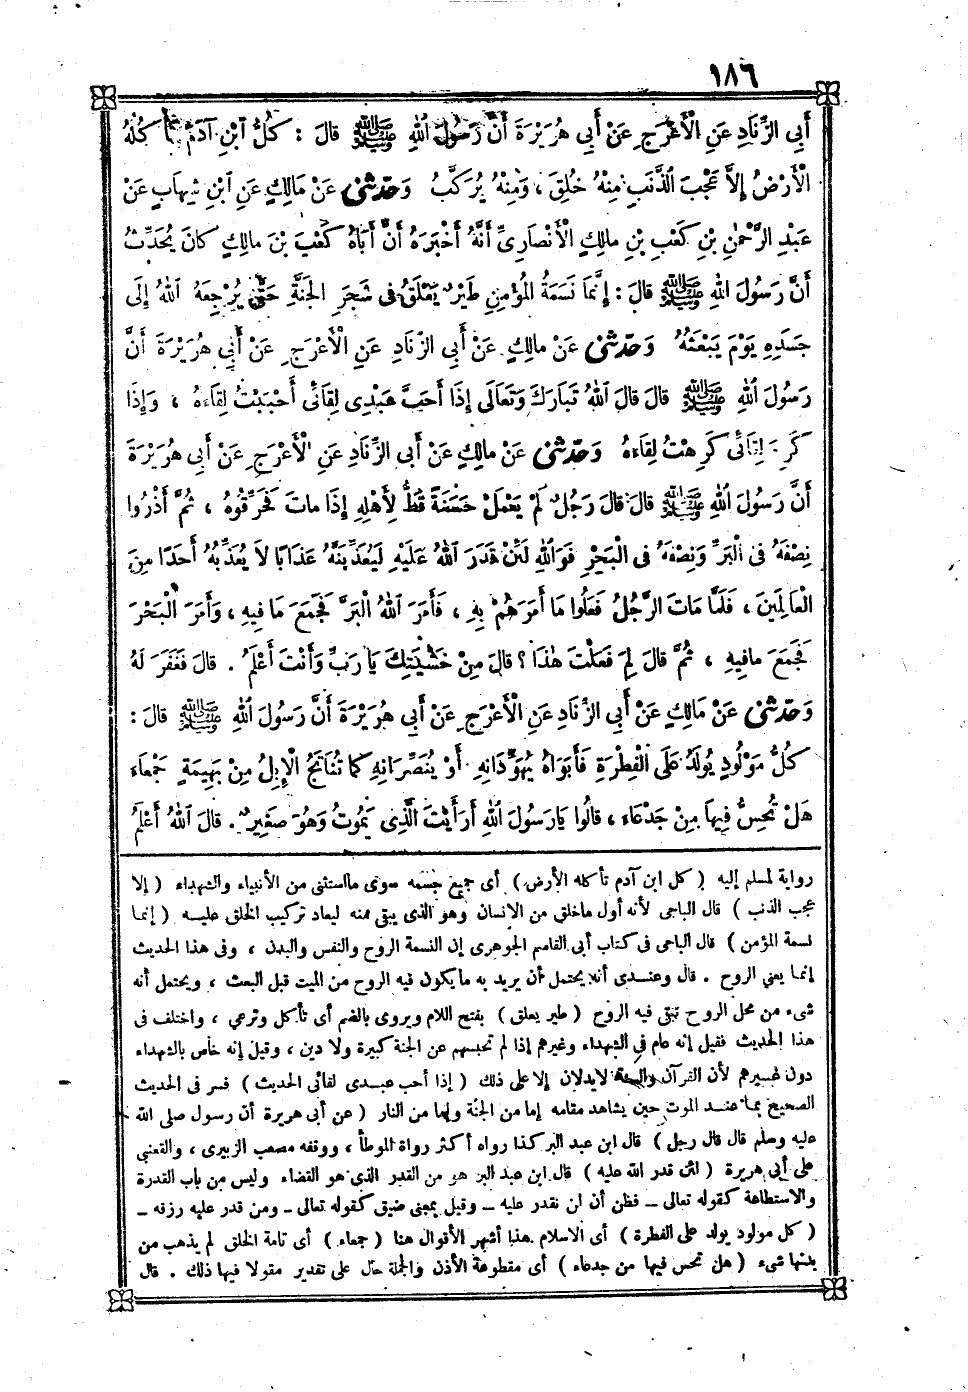 ١٨٦
أَبِي الزِّنَادِ عَنِ الْأَعْرَجِ عَنْ أَبِي هُرَيْرَةَ أَنَّ رَسُولَ اللهِ ﷺ قَالَ : كُلُّ ابْنِ آدَمَ تَأْكُلُهُ
الْأَرْضُ إِلاَّ عَجْبَ الذَّنَبِ مِنْهُ خُلِقَ ، وَمِنْهُ يُرَكَّبُ وَحَدَّثَنِي عَنْ مَالِكٍ عَنِ ابْنِ شِهَابٍ عَنْ
عَبْدِ الرَّحْمٰنِ بْنِ كَعْبِ بْنِ مالِكٍ الْأَنْصَارِىِّ أَنَّهُ أَخْبَرَهُ أَنَّ أَبَاهُ كَعْبَ بْنَ مالِكٍ كانَ يُحَدِّثُ
أَنَّ رَسُولَ اللهِ ﷺ قالَ : إِنَّمَا نَسَمَةُ الْمُؤْمِنِ طَيْرٌ يَعْلَقُ فى شَجَرِ الجَنَّةِ حَتَّى يُرْجِعَهُ اللهُ إِلَى
جَسَدِهِ يَوْمَ يَبْعَثُهُ وَحَدَّثَنِي عَنْ مالِكٍ عَنْ أَبِي الزِّنَادِ عَنِ الْأَعْرَجِ عَنْ أَبِي هُرَيْرَةَ أَنَّ
رَسُولَ اللهِ ﷺ قالَ قالَ اللهُ تَبَارَكَ وَتَعَالَى إِذَا أَحَبَّ عَبْدِى لِقَائى أَحْبَبْتُ لِقَاءَهُ ، وَإِذَا
كَرِهَ لِقَائى كَرِهْتُ لِقَاءَهُ وَحَدَّثَنِي عَنْ مالِكٍ عَنْ أَبِى الزِّنَادِ عَنِ الْأَعْرَجِ عَنْ أَبِى هُرَيْرَةَ
أَنَّ رَسُولَ اللهِ ﷺ قالَ قالَ رَجُلٌ لَمْ يَعْمَلْ حَسَنَةً قَطُّ لِأَهْلِهِ إِذَا ماتَ فَحَرِّقُوهُ ، ثُمَّ أَذْرُوا
نِصْفَهُ فى الْبَرِّ وَنِصْفَهُ فى الْبَحْرِ فَوَاللهِ لَئِنْ قَدَرَ اللهُ عَلَيْهِ لَيُعَذِّبَنَّهُ عَذَابًا لاَ يُعَذِّبُهُ أَحَدًا مِنَ
الْعَالَمِينَ ، فَلَمَّا مَاتَ الرَّجُلُ فَعَلُوا مَا أَمَرَهُمْ بِهِ ، فَأَمَرَ اللهُ الْبَرَّ فَجَمَعَ مَا فِيهِ ، وَأَمَرَ الْبَحْرَ
فَجَمَعَ مافِيهِ ، ثُمَّ قالَ لِمَ فَعَلْتَ هٰذَا ؟ قالَ مِنْ خَشْيَتِكَ يَا رَبِّ وَأَنْتَ أَعْلَمُ . قالَ فَغَفَرَ لَهُ
وَحَدَّثَنِي عَنْ مَالِكٍ عَنْ أَبِي الزِّنَادِ عَنِ الْأَعْرَجِ عَنْ أَبِي هُرَيْرَةَ أَنَّ رَسُولَ اللهِ ﷺ قالَ :
كُلُّ مَوْلُودٍ يُولَدُ عَلَى الْفِطْرَةِ فَأَبَوَاهُ يُهَوِّدَانِهِ أَوْ يُنَصِّرَانِهِ كَمَا تُنَاتَجُ الْإِبِلُ مِنْ بَهِيمَةٍ جَمْعَاءَ
هَلْ تُحِسُّ فِيهَا مِنْ جَدْعَاءَ ، قالُوا يَارَسُولَ اللهِ أَرَأَيْتَ الَّذِى يَمُوتُ وَهُوَ صَغِيرٌ . قالَ اللهُ أَعْلَمُ
رواية لمسلم إليه ( كل ابن آدم تأكله الأرض ) أى جميع جسمه سوى مااستثنى من الأنبياء والشهداء ( إلا
عجب الذنب ) قال الباجى لأنه أول ماخلق من الإنسان وهو الذى يبقى منه ليعاد تركيب الخلق عليه ( إنما
نسمة المؤمن ) قال الباجى فى كتاب أبى القاسم الجوهرى إن النسمة الروح والنفس والبدن ، وفى هذا الحديث
إنما يعنى الروح . قال وعندى أنه يحتمل أن يريد به مايكون فيه الروح من الميت قبل البعث ، ويحتمل أنه
شىء من محل الروح تبقى فيه الروح ( طير يعلق ) بفتح اللام ويروى بالضم أى تأكل وترعى ، واختلف فى
هذا الحديث فقيل إنه عام فى الشهداء وغيرهم إذا لم تحبسهم عن الجنة كبيرة ولا دين ، وقيل إنه خاص بالشهداء
دون غيرهم لأن القرآن والسنة لايدلان إلا على ذلك ( إذا أحب عبدى لقائى الحديث ) فسر فى الحديث
الصحيح بما عند الموت حين يشاهد مقامه إما من الجنة وإما من النار ( عن أبى هريرة أن رسول صلى الله
عليه وسلم قال قال رجل ) قال ابن عبد البر كذا رواه أكثر رواة الموطأ ، ووقفه مصعب الزبيرى ، والقعنبى
على أبى هريرة ( لئن قدر الله عليه ) قال ابن عبد البر هو من القدر الذى هو القضاء وليس من باب القدرة
والاستطاعة كقوله تعالى ــ فظن أن لن نقدر عليه ــ وقيل بمعنى ضيق كقوله تعالى ــ ومن قدر عليه رزقه ــ
( كل مولود يولد على الفطرة ) أى الاسلام هذا أشهر الأقوال هنا ( جمعاء ) أى تامة الخلق لم يذهب من
بدنها شىء ( هل تحس فيها من جدعاء ) أى مقطوعة الأذن والجملة حال على تقدير مقولا فيها ذلك . قال